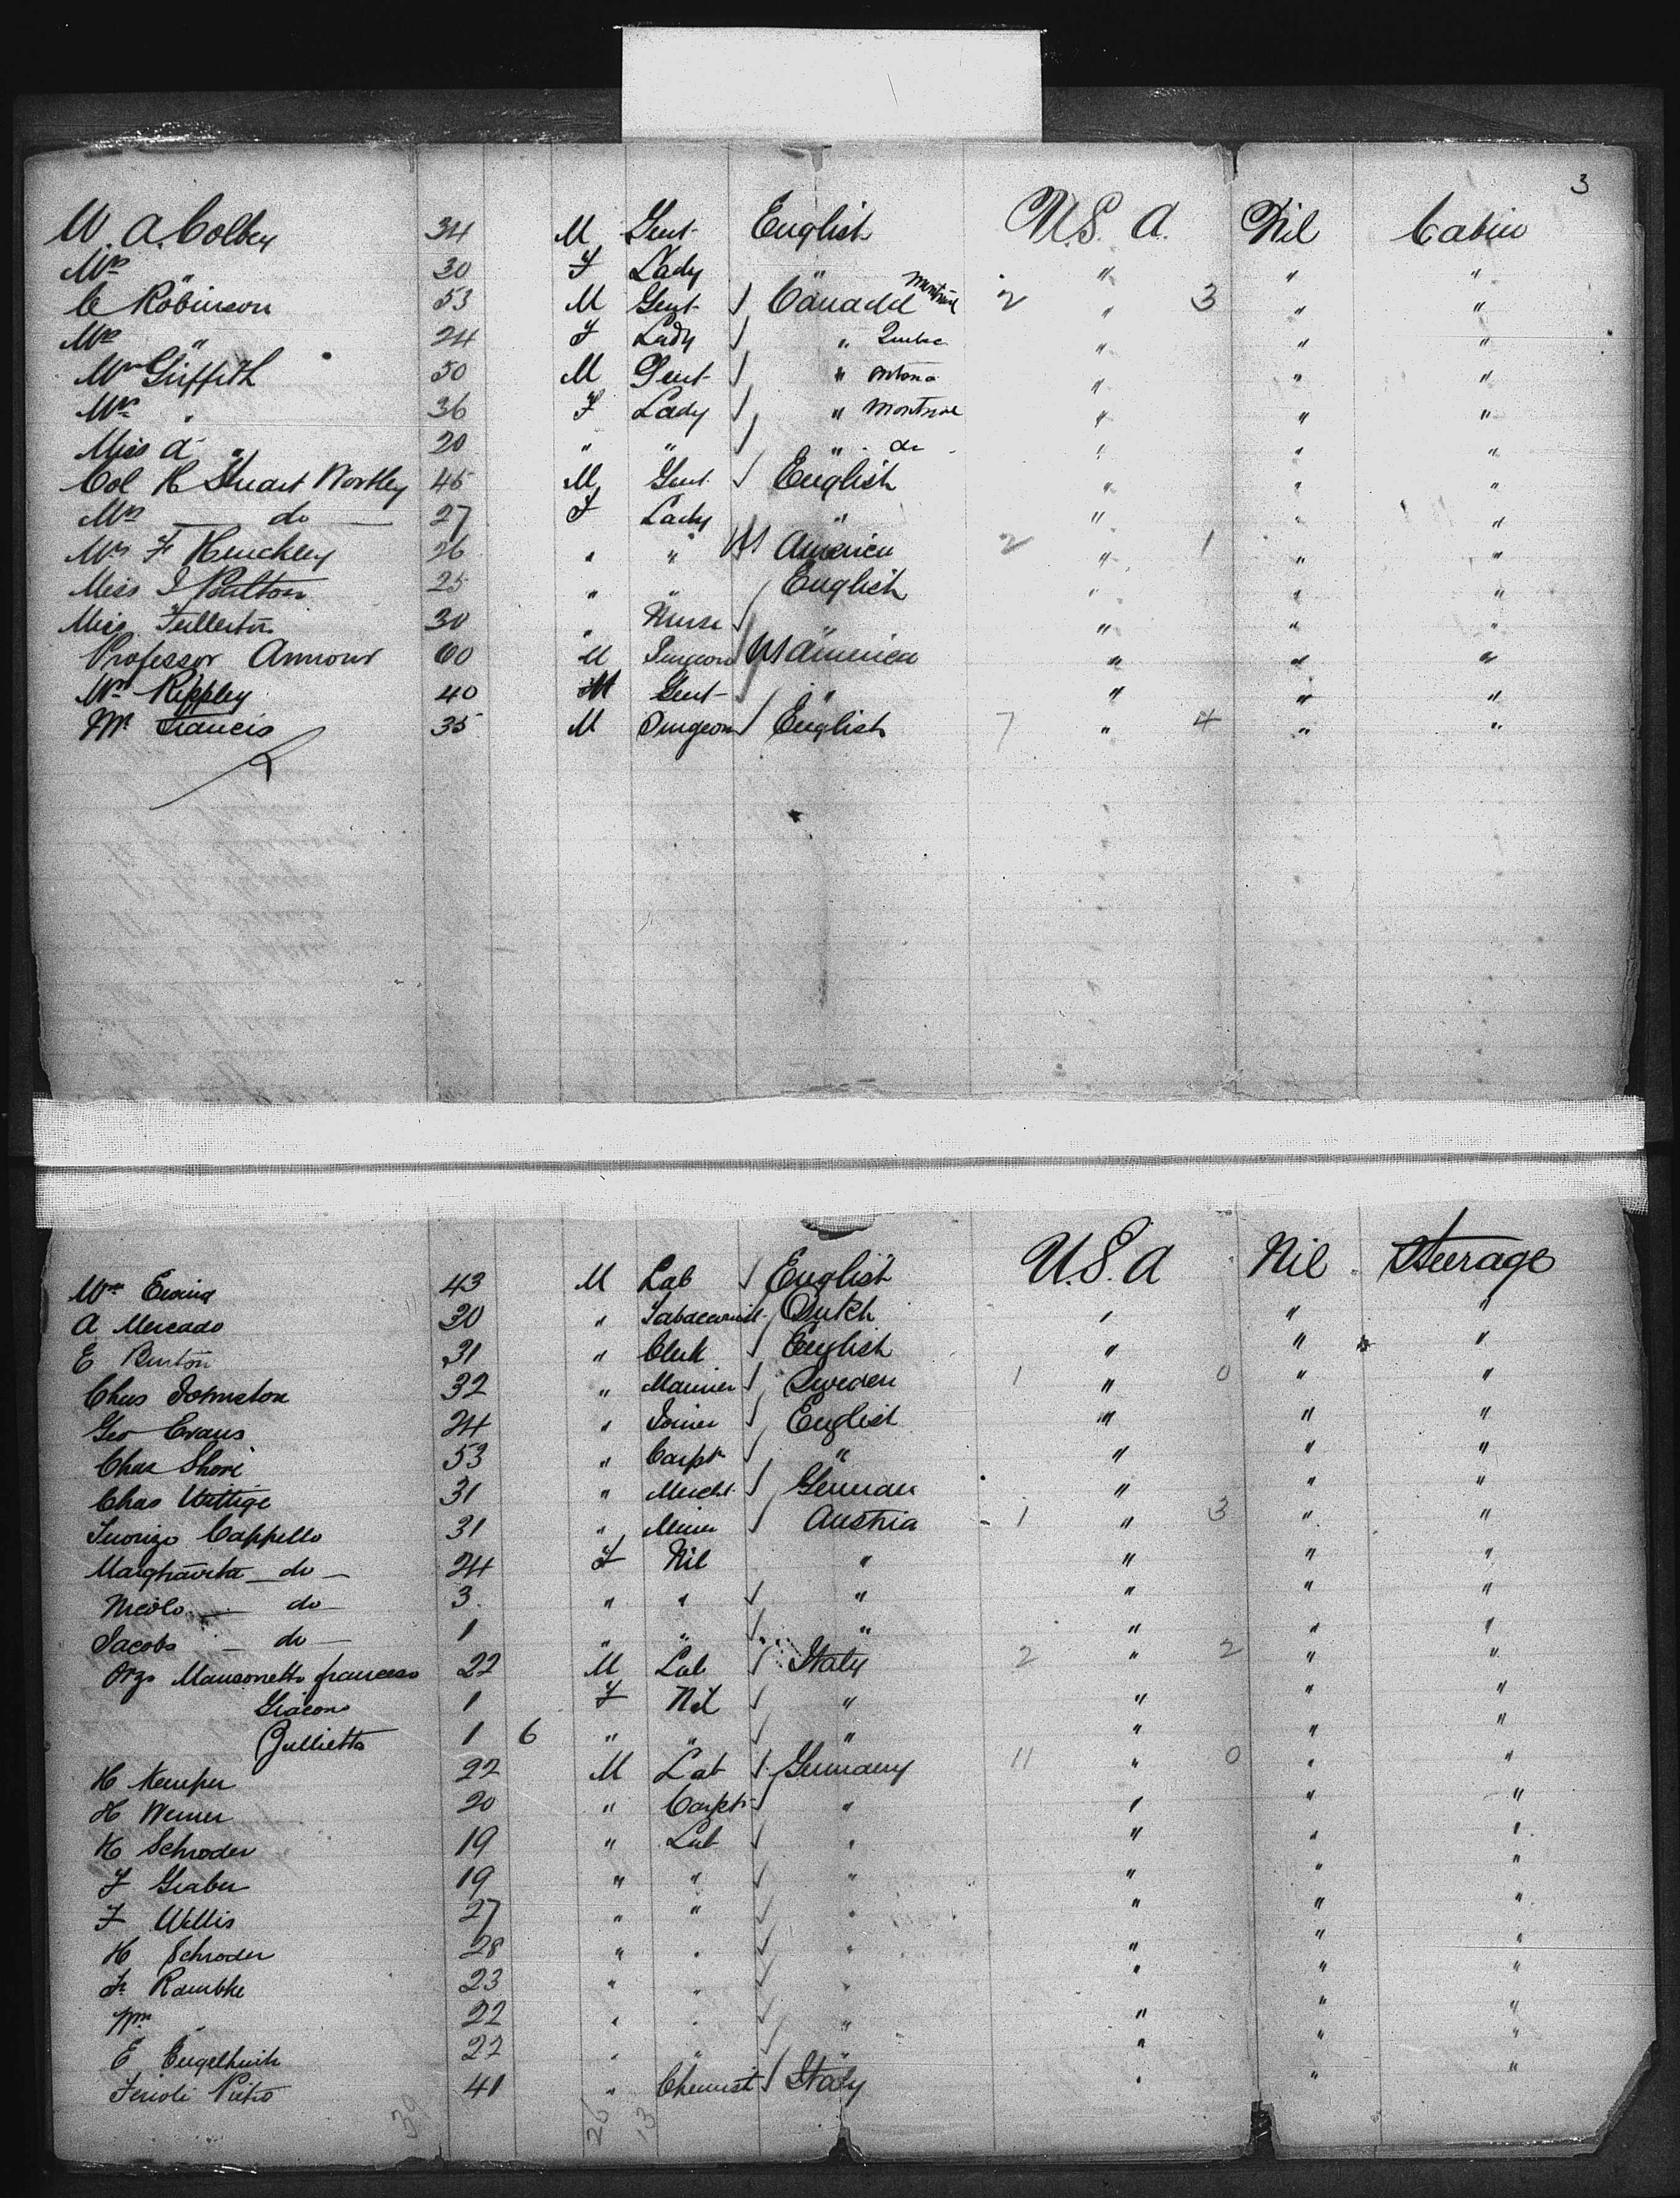 3
W. A. Colbey 34 M Gent English U.S.A. Nil Cabin
Mrs " 30 F Lady " " " "
C Robinson 53 M Gent Canada Montreal 2 " 3 " "
Mrs " 24 F Lady " Quebec " " "
Mr Griffith 50 M Gent " Ontario " " "
Mrs " 36 F Lady " Montreal " " "
Miss A " 20 " " " do " " "
Col H Stuart Wortley 45 M Gent English " " "
Mrs — do — 27 F Lady " " " "
Mrs F Hinckley 26 " " US America 2 " 1 " "
Miss J 25 " " English " " "
Miss Fullerton 30 " Nurse " " " "
Professor Armour 60 M Surgeon US America " " "
Mr Rippley 40 M Gent " " " "
Mr Francis 35 M Surgeon English 7 " 4 " "
Wm 43 M Lab English U.S.A Nil Steerage
A Mercado 30 " Tabacconist Dutch " " "
E Burton 31 " Clerk English " " "
Chas Johnston 32 " Mariner Sweden 1 " 0 " "
Geo Evans 24 " Joiner English " " "
Chas Shore 53 " Carpt " " " "
Chas Wittige 31 " Mercht German " " "
Cappello 31 " Miner Austria 1 " 3 " "
Margharita — do — 24 F Nil " " " "
Nicolo — do 3 " " " " " "
Jacobo — do — 1 " " " " " "
Manzonetto francesco 22 M Lab Italy 2 " 2 " "
Giacomo 1 F Nil " " " "
Jullietta 1 6 " " " " " "
H Kemper 22 M Lab Germany 11 " 0 " "
H Werner 20 " Carptr " " " "
H Schroder 19 " Lab " " " "
F Graber 19 " " " " " "
F Willis 27 " " " " " "
H Schroder 28 " " " " " "
Fr Rambke 23 " " " " " "
Wm " 22 " " " " " "
E 22 " " " " " "
Pietro 41 " Chemist Italy " " "
30 26 13